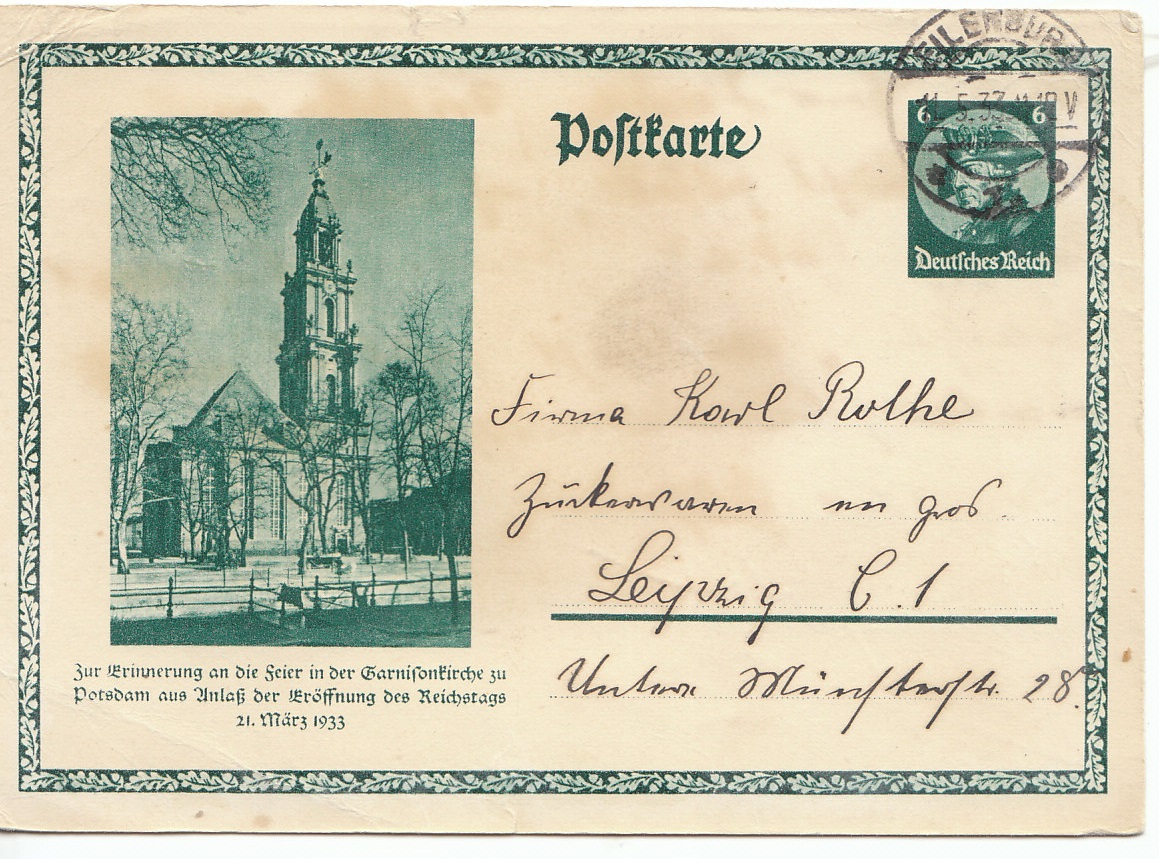 Postkarte
EILENBURG
11.5.33.11-12V
6 6
Deutsches Reich
Firma Karl Rothe
Zuckerwaren en gros
Leipzig C. 1
Untere Münsterstr. 28.
Zur Erinnerung an die Feier in der Garnisonkirche zu
Potsdam aus Anlaß der Eröffnung des Reichstags
21. März 1933